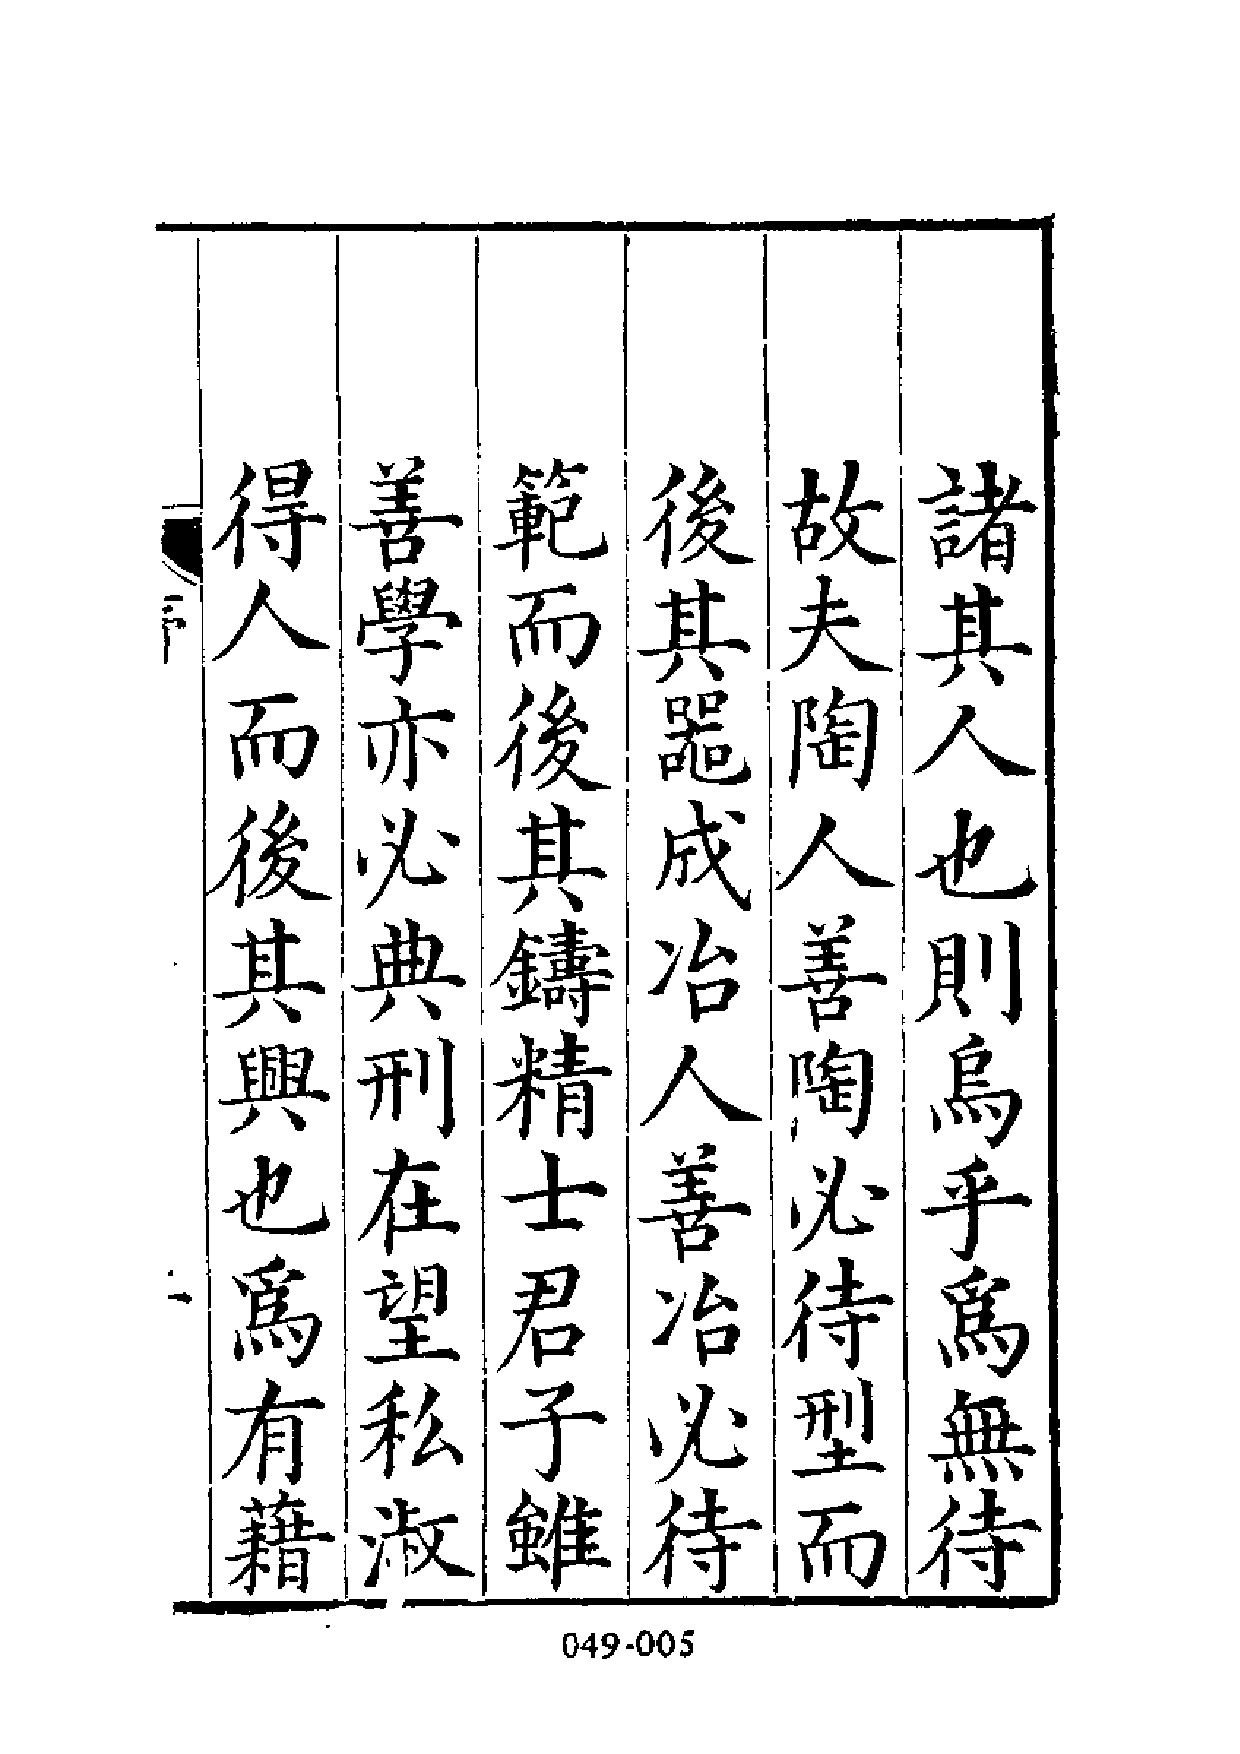 諸其人也則烏乎爲無待
故夫陶人善陶必待型而
後其噐成冶人善冶必待
範而後其鑄精士君子雖
善學亦必典刑在望私淑
得人而後其興也爲有藉
049-005